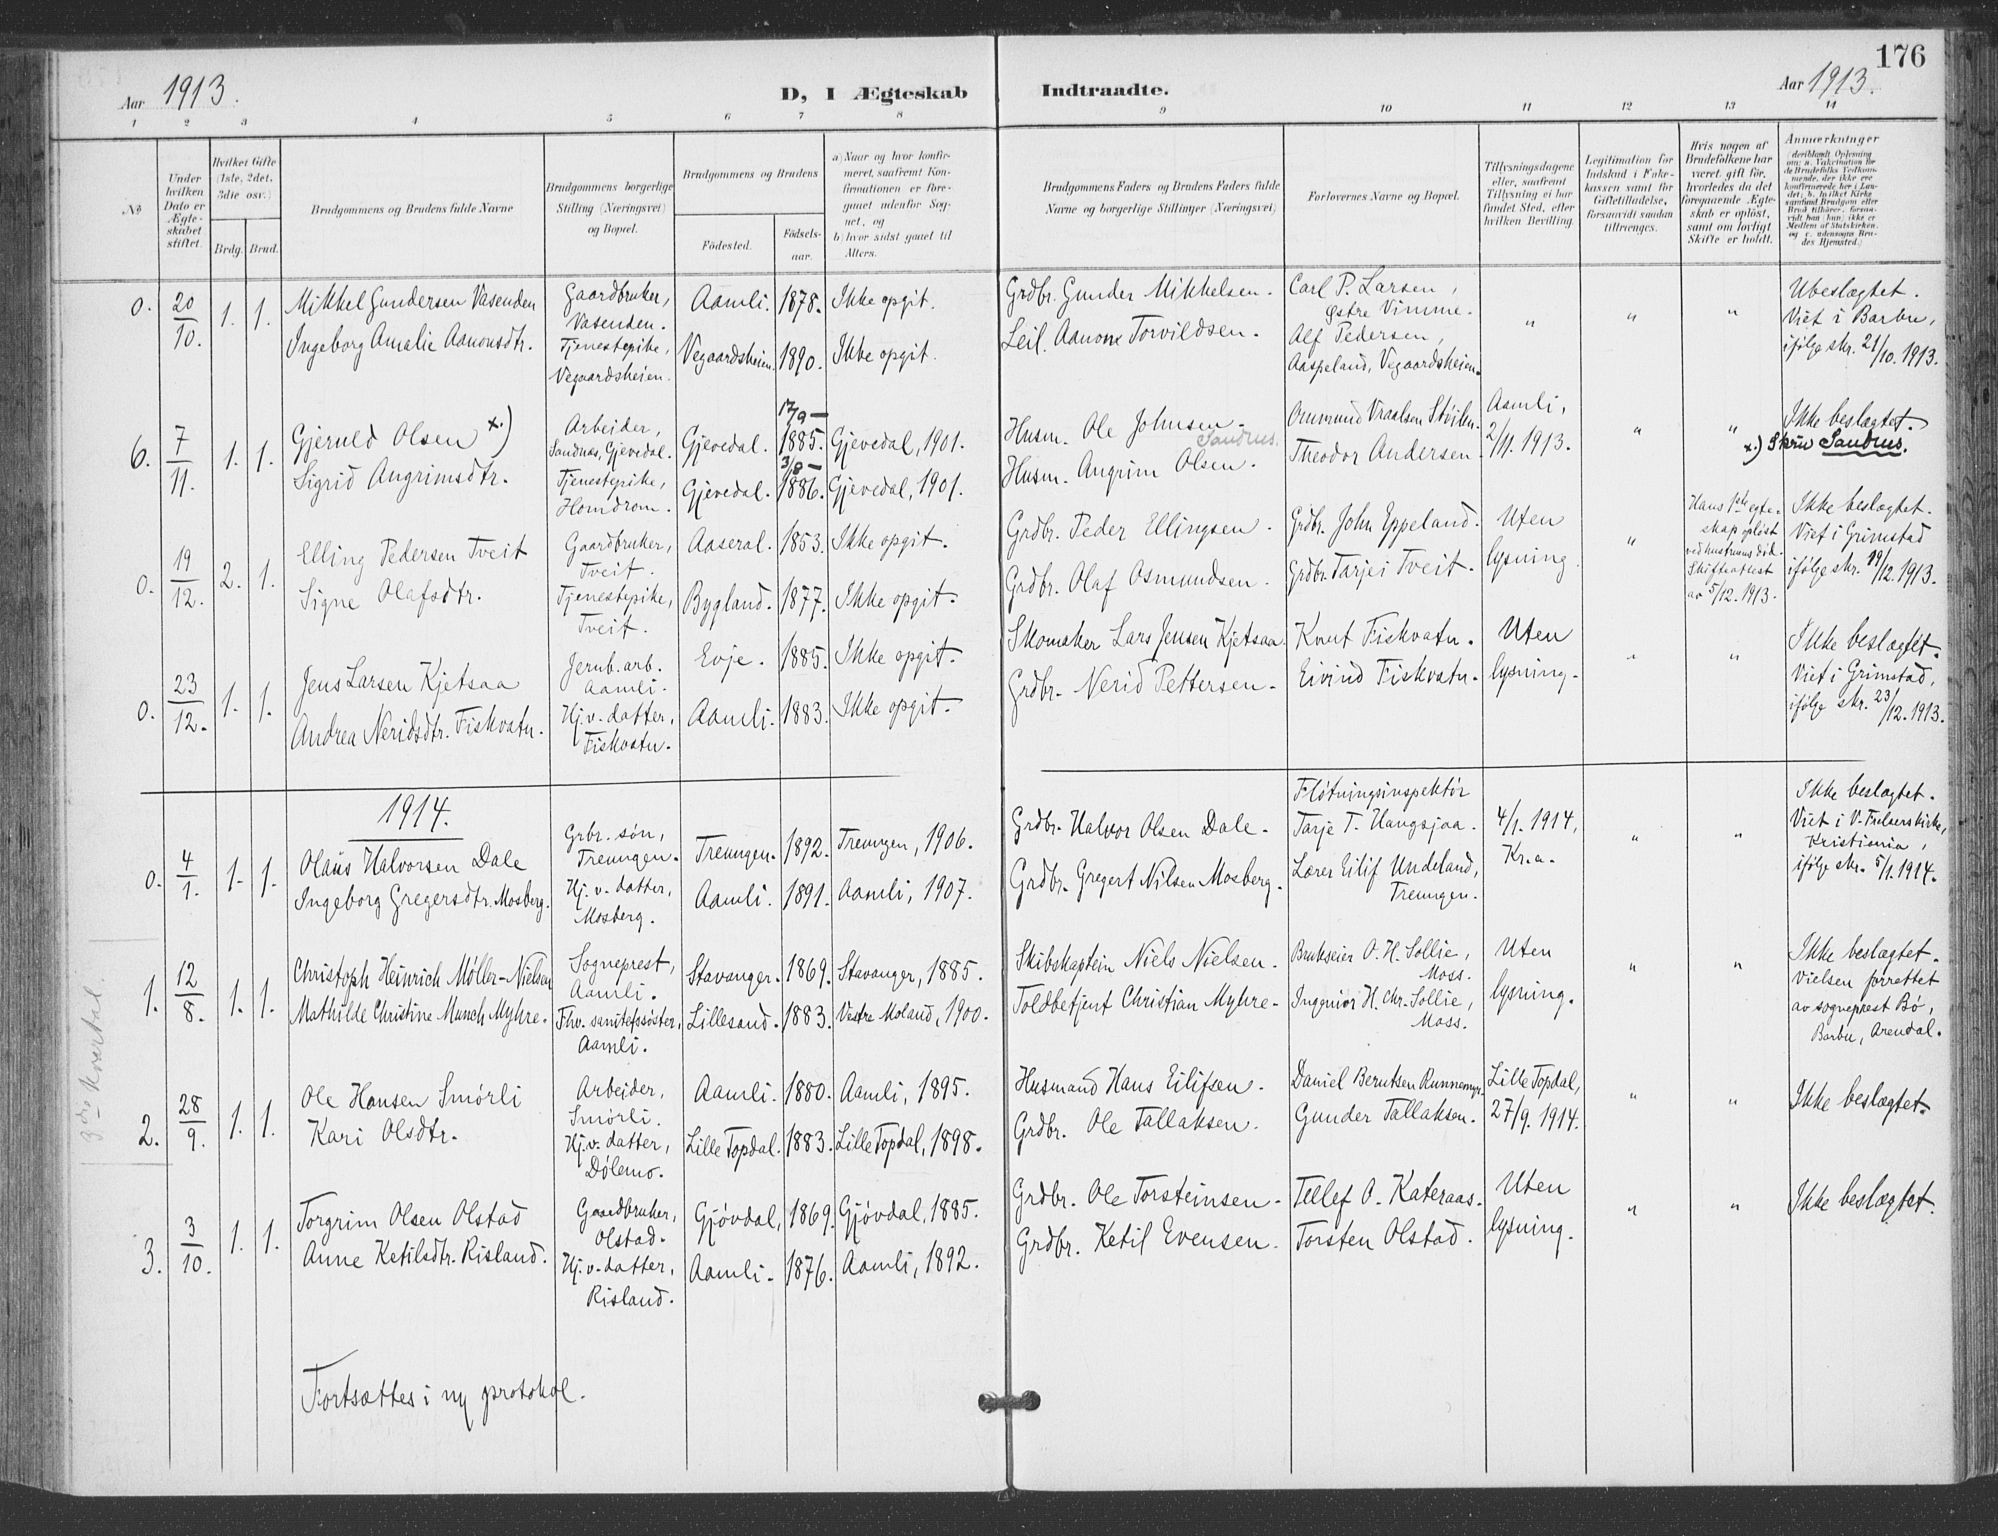 176
Aar 1913.
D, I Ægteskab Indtraadte.
Aar 1913.
1 2 3 4 5 6 7 8 9 10 11 12 13 14
No
Under hvilken Dato er Ægteskabet stiftet.
Hvilket Gifte (1ste, 2det, 3die osv.)
Brdg. Brud.
Brudgommens og Brudens fulde Navne
Brudgommens borgerlige Stilling (Næringsvei) og Bopæl.
Brudgommens og Brudens
Fødested.
Fødselsaar.
a) Naar og hvor konfirmeret, saafremt Konfirmationen er foregaaet udenfor Sognet, og
b) hvor sidst gaaet til Alters.
Brudgommens Faders og Brudens Faders fulde Navne og borgerlige Stillinger (Næringsvei)
Forlovernes Navne og Bopæl.
Tillysningsdagene eller, saafremt Tillysning ei har fundet Sted, efter hvilken Bevilling.
Legitimation for Indskud i Enkekassen samt for Giftetilladelse, forsaavidt saadan tiltrænges.
Hvis nogen af Brudefolkene har været gift før, hvorledes da det foregaaende Ægteskab er opløst, samt om lovligt Skifte er holdt.
Anmærkninger
0. 20/10. 1. 1.
Mikkel Gundersen Vasenden
Ingeborg Amalie Aanonsdtr.
Gaardbruker,
Vasenden.
Tjenestepike,
Vegaardsheien.
Aamli. 1878. Ikke opgit.
Vegaardsheien. 1890. Ikke opgit.
Grdbr. Gunder Mikkelsen.
Leil. Aanon Torvildsen.
Carl P. Larsen,
Østre Vimme.
Alf Pedersen,
Aaspeland, Vegaardsheien.
" " "
Ubeslægtet.
Viet i Barbu,
ifølge skr. 21/10. 1913.
6. 7/11. 1. 1.
Gjeruld Olsen x.)
Sigrid Angrimsdtr.
Arbeider,
Sandnæs, Gjevedal.
Tjenestepike,
Homdrom.
Gjevedal. 17/9 – 1885. Gjevedal, 1901.
Gjevedal. 3/8 – 1886. Gjevedal, 1901.
Husm. Ole Johnsen.
Sandnes.
Husm. Angrim Olsen.
Ommund Vraalsen Støilen.
Theodor Andersen.
Aamli,
2/11. 1913.
" "
Ikke beslægtet.
x.) Skriv Sandnes.
0. 19/12. 2. 1.
Elling Pedersen Tveit
Signe Olafsdtr.
Gaardbruker,
Tveit.
Tjenestepike,
Tveit.
Aaseral. 1853. Ikke opgit.
Bygland. 1877. Ikke opgit.
Grdbr. Peder Ellingsen.
Grdbr. Olaf Osmundsen.
Grdbr. John Eppeland.
Grdbr. Tarjei Tveit.
Uten
lysning.
"
Hans 1ste egte-
skap opløst
ved hustruens død.
Skifteattest
av 5/12. 1913.
Ikke beslægtet.
Viet i Grimstad
ifølge skr. 19/12. 1913.
0. 23/12. 1. 1.
Jens Larsen Kjetsaa
Andrea Neridsdtr. Fiskvatn.
Jernb. arb.
Aamli.
Hj. v. datter,
Fiskvatn.
Evje. 1885. Ikke opgit.
Aamli. 1883. Ikke opgit.
Skomaker Lars Jensen Kjetsaa.
Grdbr. Nerid Pettersen.
Knut Fiskvatn.
Eivind Fiskvatn.
Uten
lysning.
" "
Ikke beslægtet.
Viet i Grimstad,
ifølge skr. 23/12. 1913.
1914.
0. 4/1. 1. 1.
Olaus Halvorsen Dale
Ingeborg Gregersdtr. Mosberg.
Grbr. søn,
Treungen.
Hj. v. datter,
Mosberg.
Treungen. 1892. Treungen, 1906.
Aamli. 1891. Aamli, 1907.
Grdbr. Halvor Olsen Dale.
Grdbr. Gregert Nilsen Mosberg.
Fløtningsinspektør
Tarje T. Haugsjaa.
Lærer Eilif Undeland,
Treungen.
4/1. 1914,
Kr.a.
" "
Ikke beslægtet.
Viet i V. Frelserskirke,
Kristiania,
ifølge skr. 5/1. 1914.
3dje kvartal.
1. 12/8. 1. 1.
Christoph Heinrich Møller-Nielsen
Mathilde Christine Munch Myhre.
Sogneprest,
Aamli.
Fhv. sanitetssøster,
Aamli.
Stavanger. 1869. Stavanger, 1885.
Lillesand. 1883. Vestre Moland, 1900.
Skibskaptein Niels Nielsen.
Toldbetjent Christian Myhre.
Brukseier O. H. Sollie,
Moss.
Ingeniør H. Chr. Sollie,
Moss.
Uten
lysning.
" "
Ikke beslægtet.
Vielsen forrettet
av sogneprest Bø,
Barbu, Arendal.
2. 28/9. 1. 1.
Ole Hansen Smørli
Kari Olsdtr.
Arbeider,
Smørli.
Hj. v. datter,
Dølemo.
Aamli. 1880. Aamli, 1895.
Lille Topdal. 1883. Lille Topdal, 1898.
Husmand Hans Eilifsen.
Grdbr. Ole Tallaksen.
Daniel Berntsen Runnemyr.
Gunder Tallaksen.
Lille Topdal,
27/9. 1914.
" "
Ikke beslægtet.
3. 3/10. 1. 1.
Torgrim Olsen Olstad
Anne Ketilsdtr. Risland.
Gaardbruker,
Olstad.
Hj. v. datter,
Risland.
Gjøvdal, 1869. Gjøvdal, 1885.
Aamli. 1876. Aamli, 1892.
Grdbr. Ole Torsteinsen.
Grdbr. Ketil Evensen.
Tellef O. Kateraas.
Torsten Olstad.
Uten
lysning.
" "
Ikke beslægtet.
Fortsættes i ny protokol.